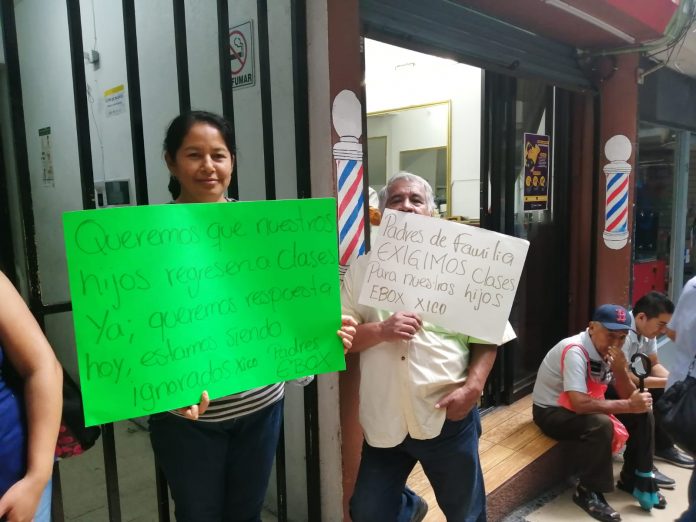 FUMAR
Queremos que nuestros
hijos regresen a clases
Ya; queremos respuesta
hoy, estamos siendo
ignorados Xico Padres
EBOX
Padres de familia
EXIGIMOS clases
Para nuestros hijos
EBOX XICO
B